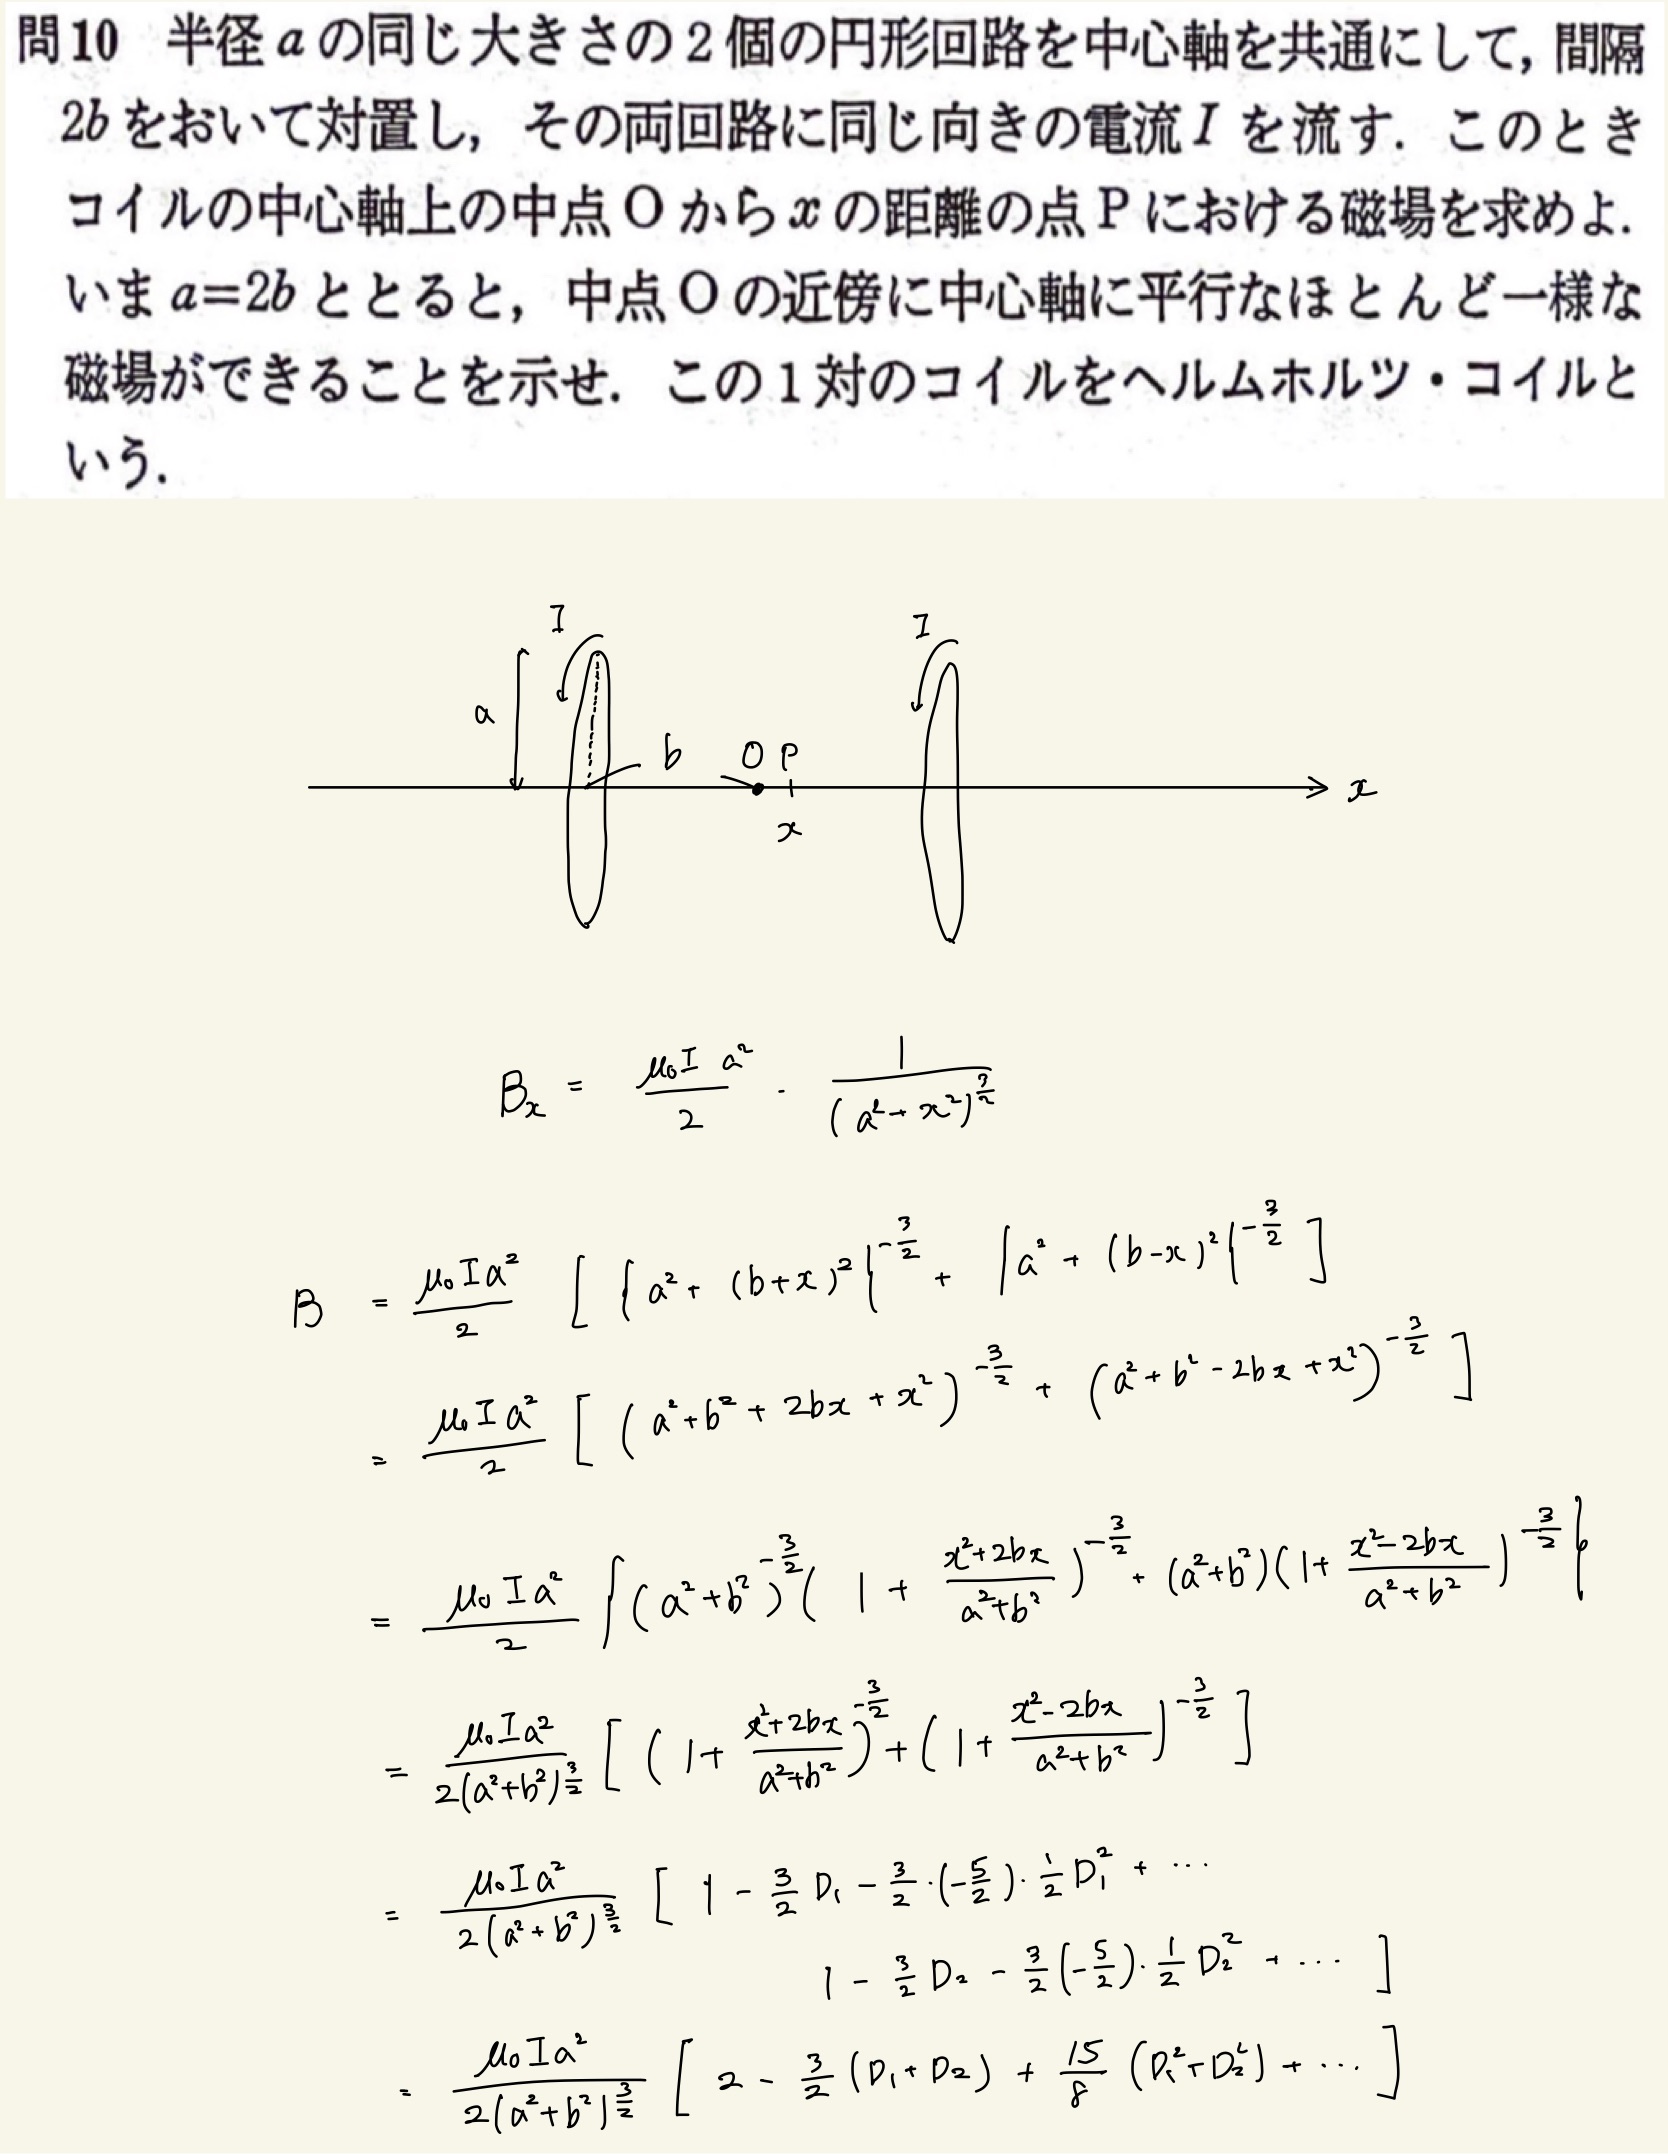 問10 半径aの同じ大きさの2個の円形回路を中心軸を共通にして, 間隔
2bをおいて対置し, その両回路に同じ向きの電流Iを流す. このとき
コイルの中心軸上の中点Oからxの距離の点Pにおける磁場を求めよ.
いまa=2bととると, 中点Oの近傍に中心軸に平行なほとんど一様な
磁場ができることを示せ. この1対のコイルをヘルムホルツ・コイルと
いう.
I I
a b O P
x x
B_x = μ₀I a²/2 · 1/(a²+x²)^{3/2}
B = μ₀Ia²/2 [ {a²+(b+x)²}^{-3/2} + {a²+(b-x)²}^{-3/2} ]
= μ₀Ia²/2 [ (a²+b²+2bx+x²)^{-3/2} + (a²+b²-2bx+x²)^{-3/2} ]
= μ₀Ia²/2 { (a²+b²)^{-3/2} (1+ (x²+2bx)/(a²+b²))^{-3/2} + (a²+b²)(1+ (x²-2bx)/(a²+b²))^{-3/2} }
= μ₀Ia²/2(a²+b²)^{3/2} [ (1+ (x²+2bx)/(a²+b²))^{-3/2} + (1+ (x²-2bx)/(a²+b²))^{-3/2} ]
= μ₀Ia²/2(a²+b²)^{3/2} [ 1 - 3/2 D₁ - 3/2·(-5/2)·1/2 D₁² + ···
1 - 3/2 D₂ - 3/2(-5/2)·1/2 D₂² + ··· ]
= μ₀Ia²/2(a²+b²)^{3/2} [ 2 - 3/2 (D₁+D₂) + 15/8 (D₁²+D₂²) + ··· ]